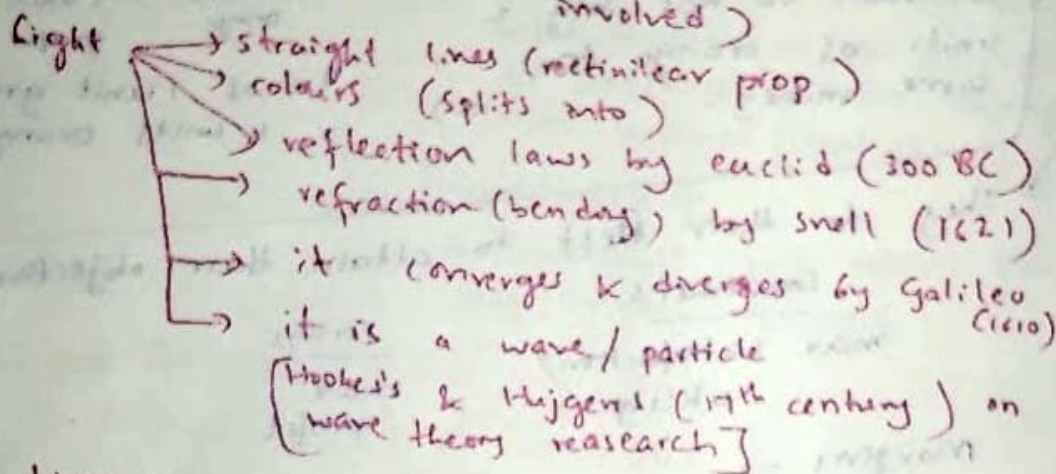 involved )
Light → straight lines (rectinilear prop )
→ colours (splits into)
→ reflection laws by euclid (300 BC)
→ refraction (bending) by snell (1621)
→ it converges & diverges by Galileo (1610)
→ it is a wave / particle
[Hooke's & Hujgens (17th century) on
wave theory reasearch]